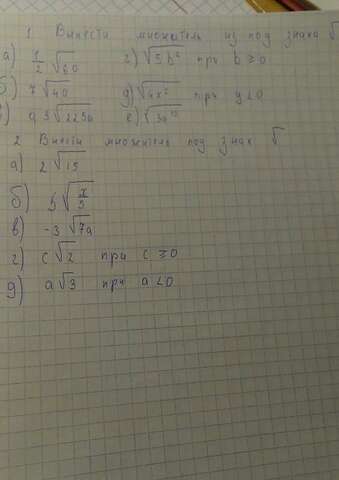 1 Вынести множитель из под знака √
а) 1/2 √60 г) √5b² при b ≥ 0
б) 7 √40 д) √4x² при y < 0
0,3 √225a е) √3a¹⁰
2 Внести множитель под знак √
а) 2 √15
б) 5 √x/5
в) -3 √7a
г) c √2 при c ≥ 0
д) a √3 при a < 0